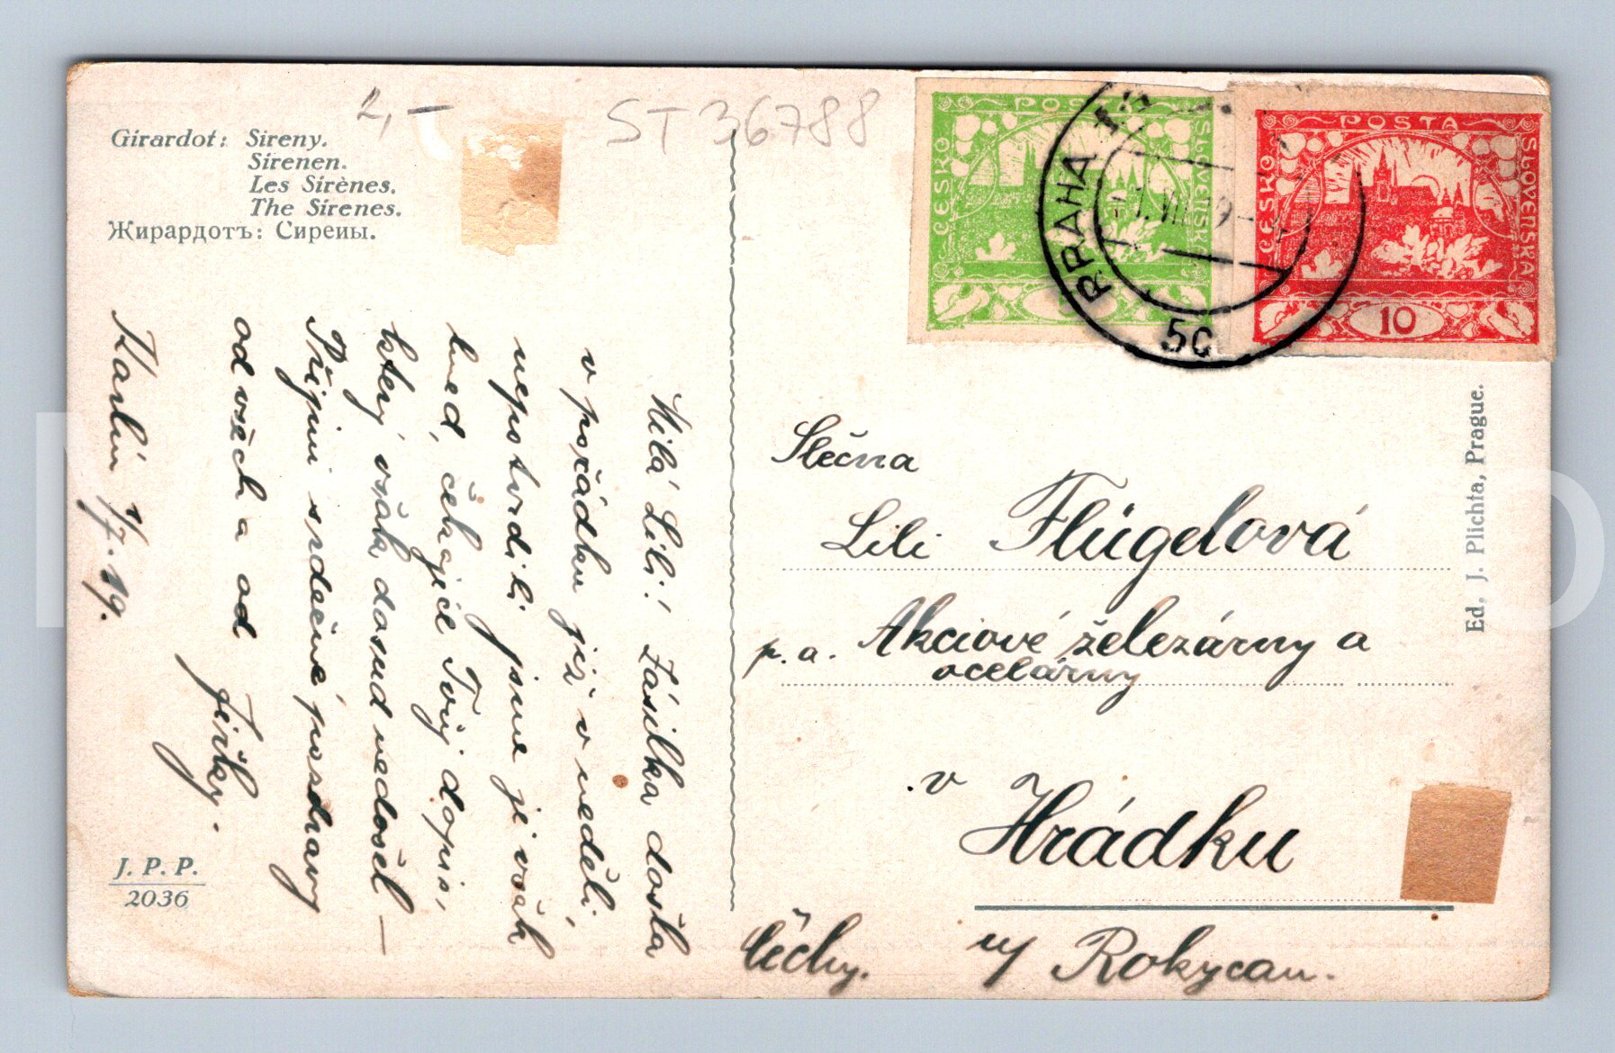 2,-
ST 36788
Girardot: Sireny.
Sirenen.
Les Sirènes.
The Sirenes.
Жирардотъ: Сирены.
Milá Lili! Zásilka došla
v pořádku již v neděli,
nepotvrdili jsme ji však
hned, čekajíce Tvůj dopis,
který však dosud nedošel –
Přijmi srdečné pozdravy
od všech a od
Jiřky.
Karlín 1/7. 19.
J. P. P.
2036
POSTA
ČESKO
SLOVENSKÁ
POSTA
ČESKO
SLOVENSKÁ
10
PRAHA
1.VII.19
5c
Slečna
Lili Flügelová
p. a. Akciové železárny a
ocelárny
v
Hrádku
u/ Rokycan.
Čechy.
Ed. J. Plichta, Prague.